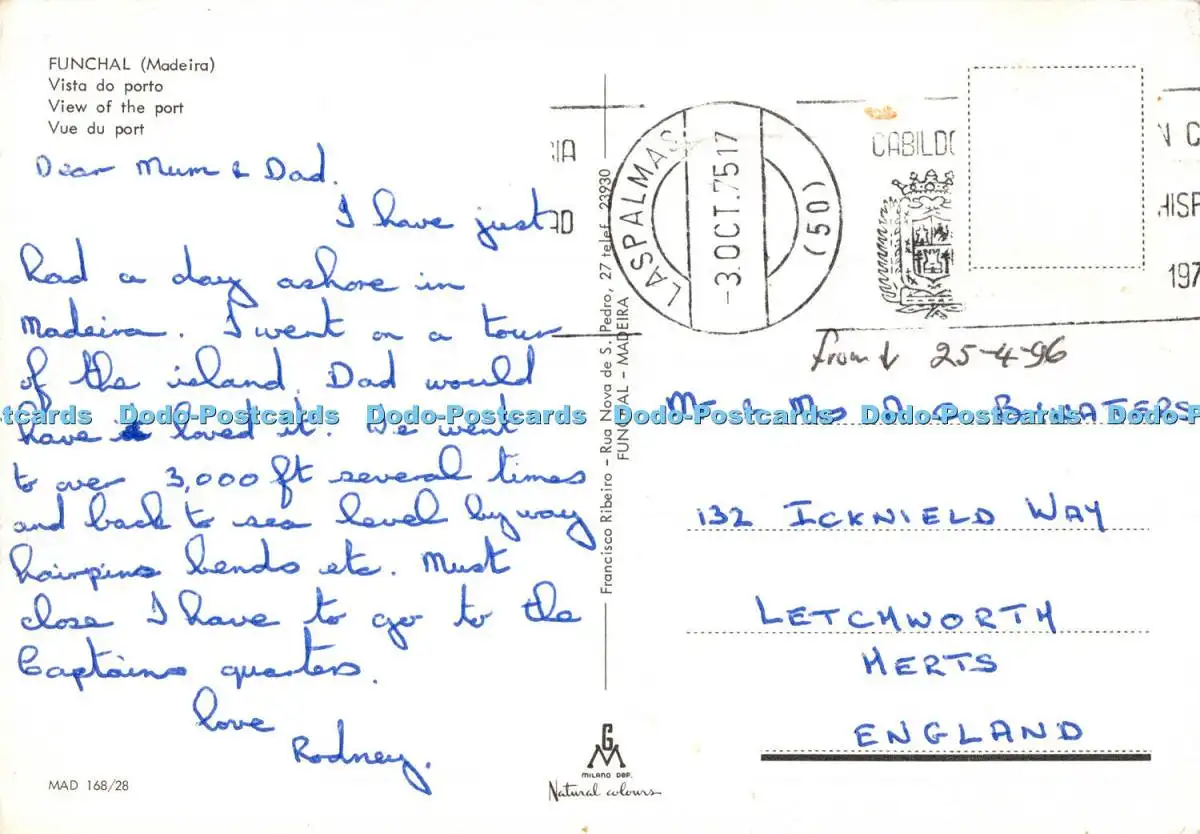 FUNCHAL (Madeira)
Vista do porto
View of the port
Vue du port
Dear Mum & Dad.
I have just
had a day ashore in
Madeira. I went on a tour
of the island. Dad would
have loved it. We went
to over 3,000 ft several times
and back to sea level by way
hairpins bends etc. Must
close I have to go to the
Captains quarters.
love
Rodney.
MAD 168/28
Francisco Ribeiro - Rua Nova de S. Pedro, 27 telef. 23930
FUNCHAL - MADEIRA
GM
MILANO DEP.
Natural colours
LAS PALMAS
-3.OCT.75 17
(50)
CABILDO
HISP
197
from 25-4-96
Mr & Mrs
132 ICKNIELD WAY
LETCHWORTH
HERTS
ENGLAND
tcards Dodo-Postcards Dodo-Postcards Dodo-Postcards Dodo-Postcards Dodo-P